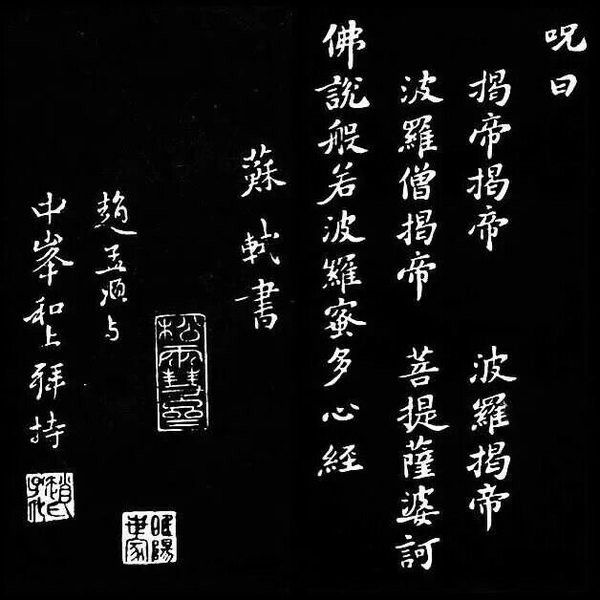 呪曰
揭帝揭帝 波羅揭帝
波羅僧揭帝 菩提薩婆訶
佛說般若波羅蜜多心經
蘇軾書
趙孟頫与
中峯和上拜持
趙氏子昂